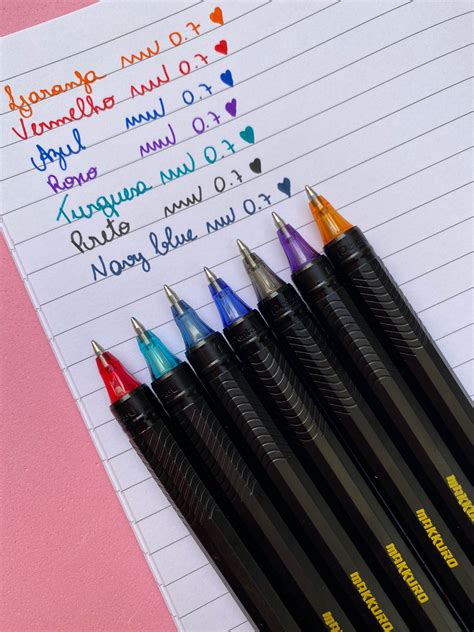 Laranja mw 0.7
Vermelho mw 0.7
Azul mw 0.7
Roxo mw 0.7
Turquesa mw 0.7
Preto mw 0.7
Navy blue mw 0.7
MAKKURO
MAKKURO
MAKKURO
MAKKURO
MAKKURO